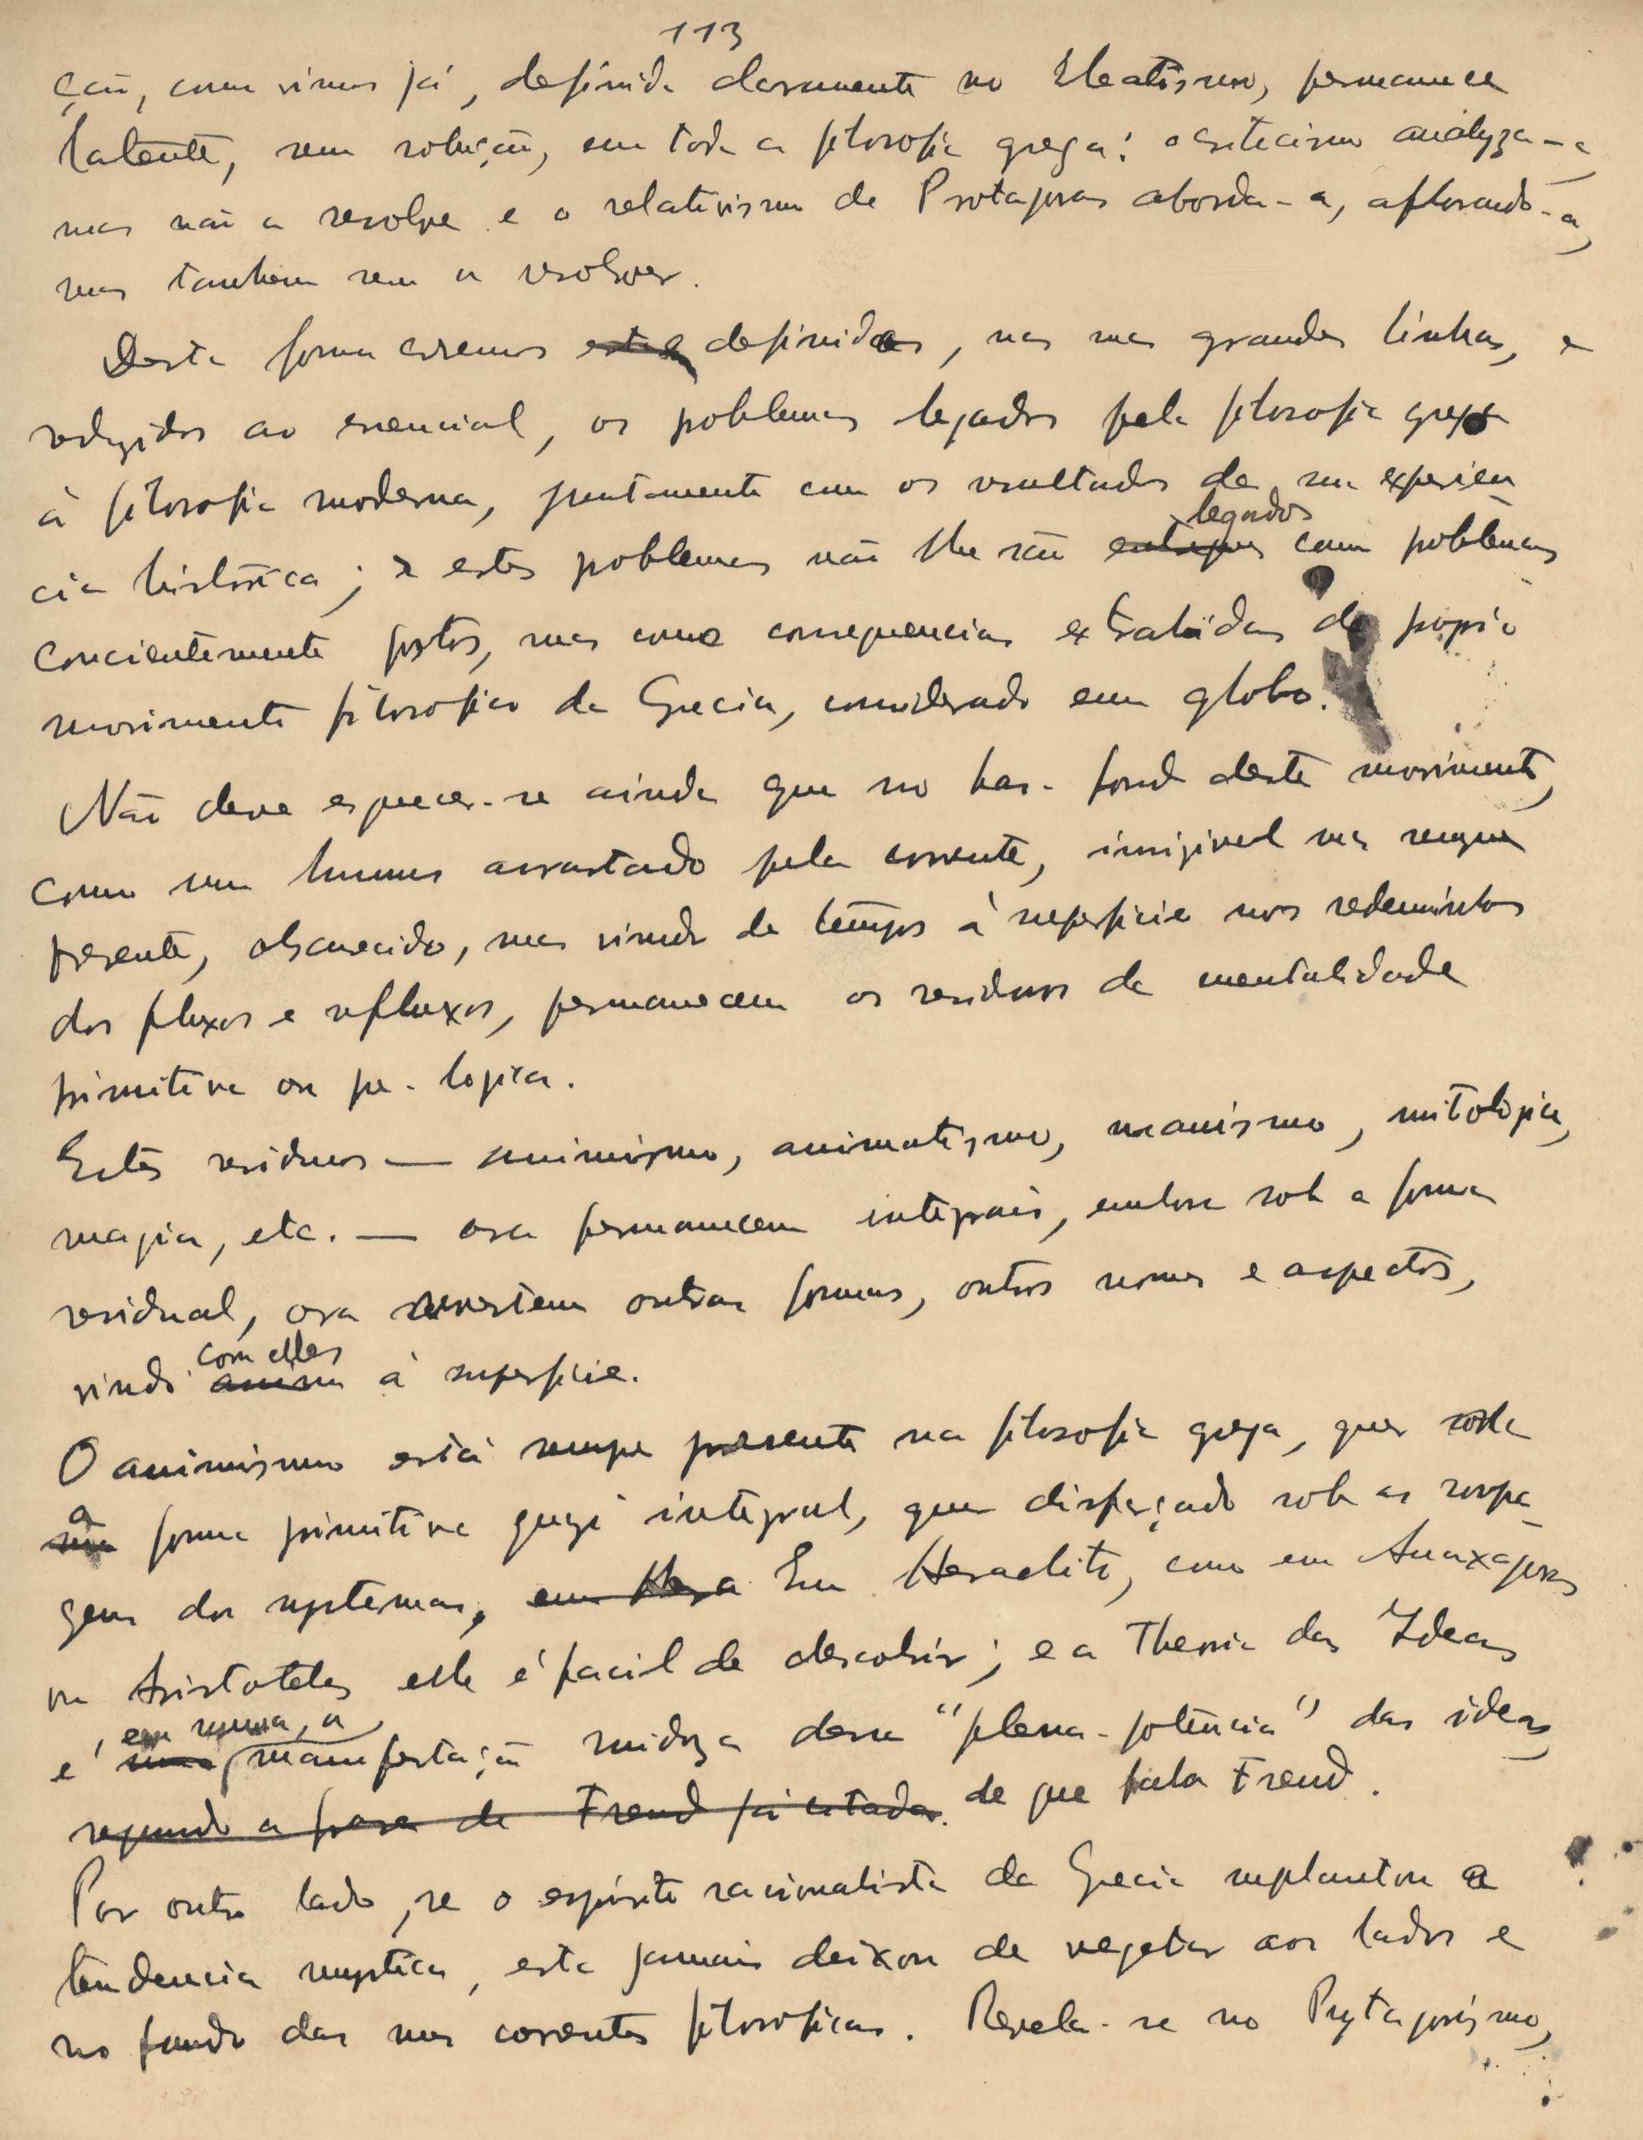 113
ção, como vimos já, definida claramente no Eleatismo, permanece
latente, sem solução, em toda a filosofia grega: o criticismo analyza-a
mas não a resolve e o relativismo de Protagoras aborda-a, aflorando-a,
mas tambem sem a resolver.
Desta forma cremos definidos, nas suas grandes linhas, e
reduzidos ao esencial, os problemas legados pela filosofia grega
à filosofia moderna, juntamente com os resultados da sua experien
cia historica; e estes problemas não lhe são legados como problemas
concientemente postos, mas como consequencias extrahidas do proprio
movimento filosofico da Grecia, considerado em globo.
Não deve esquecer-se ainda que no bas-fond deste movimento,
como um humus arrastado pela corrente, invizivel mas sempre
prezente, obscurecido, mas vindo de tempos à superficie nos redemoinhos
dos fluxos e refluxos, permanecem os residuos da mentalidade
primitiva ou pre-logica.
Estes residuos — animismo, animatismo, manismo, mitologia,
magia, etc. — ora permanecem integrais, embora sob a forma
residual, ora revestem outras formas, outros nomes e aspectos,
vindo com elles à superficie.
O animismo está sempre presente na filosofia grega, quer sob
a forma primitiva quazi integral, quer disfarçado sob as roupa-
gens dos systemas. Em Heraclito, como em Anaxagoras
ou Aristoteles elle é facil de descobrir; e a Theoria das Ideas
é, em summa, a manifestação dessa "plena-potência" das ideas,
segundo a frase de Freud já citada. de que fala Freud.
Por outro lado, se o espirito racionalista da Grecia suplantou a
tendencia mystica, esta jamais deixou de vegetar aos lados e
no fundo das suas correntes filosoficas. Revela-se no Pytagorismo,